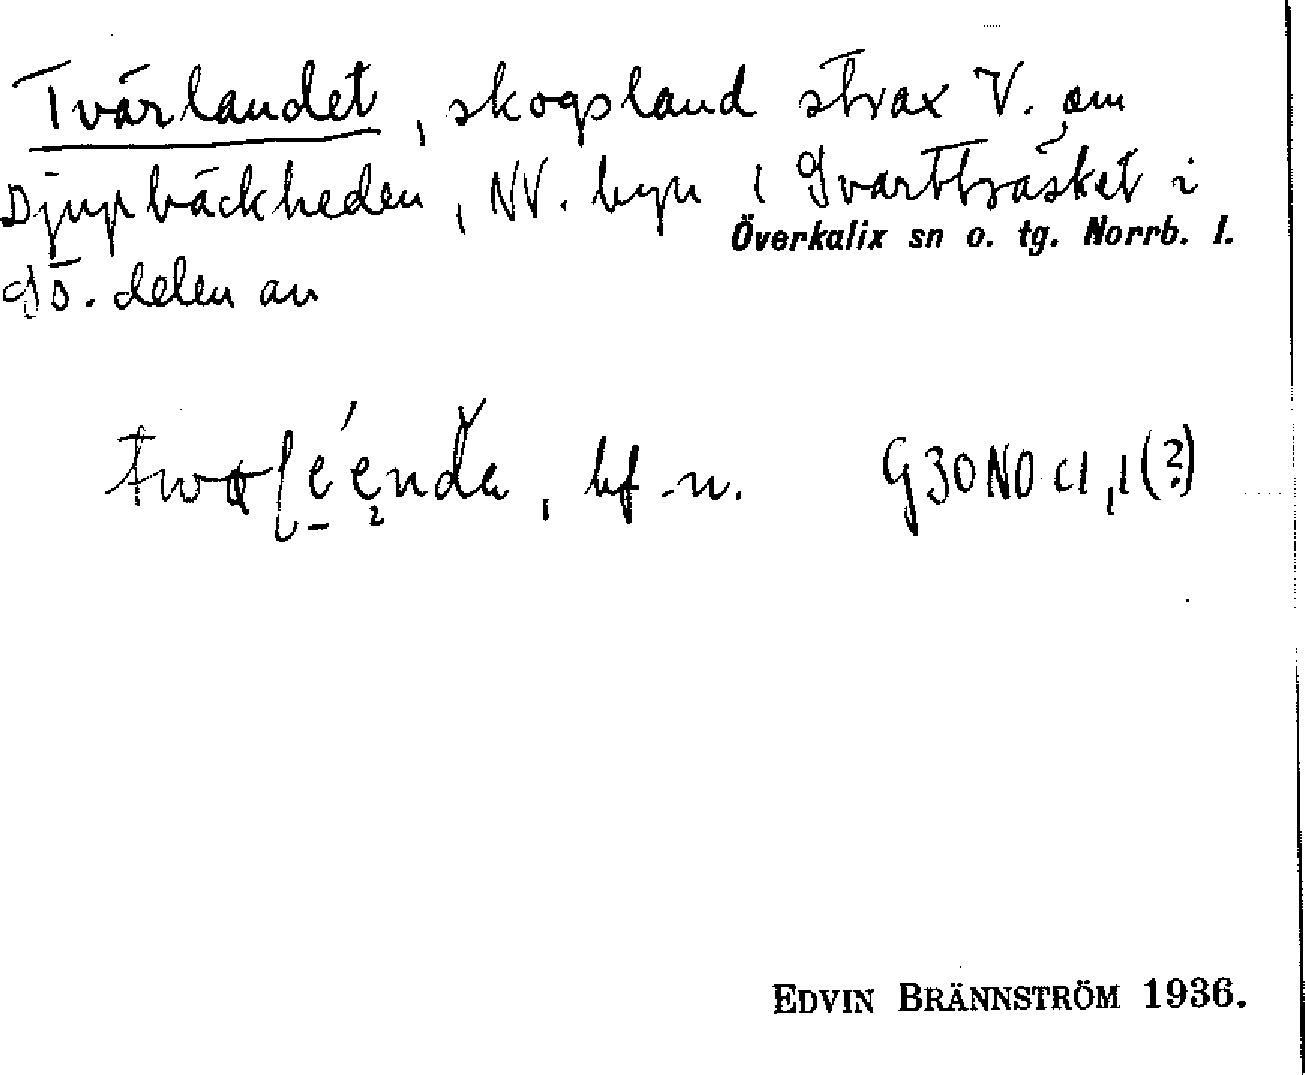 Tvärlandet, skogsland strax V. om
Djupbäckheden, NV. byn i Svartträsket i
SÖ. delen av
Överkalix sn o. tg. Norrb. l.
bf. n. G30NO c1,1(?)
EDVIN BRÄNNSTRÖM 1936.